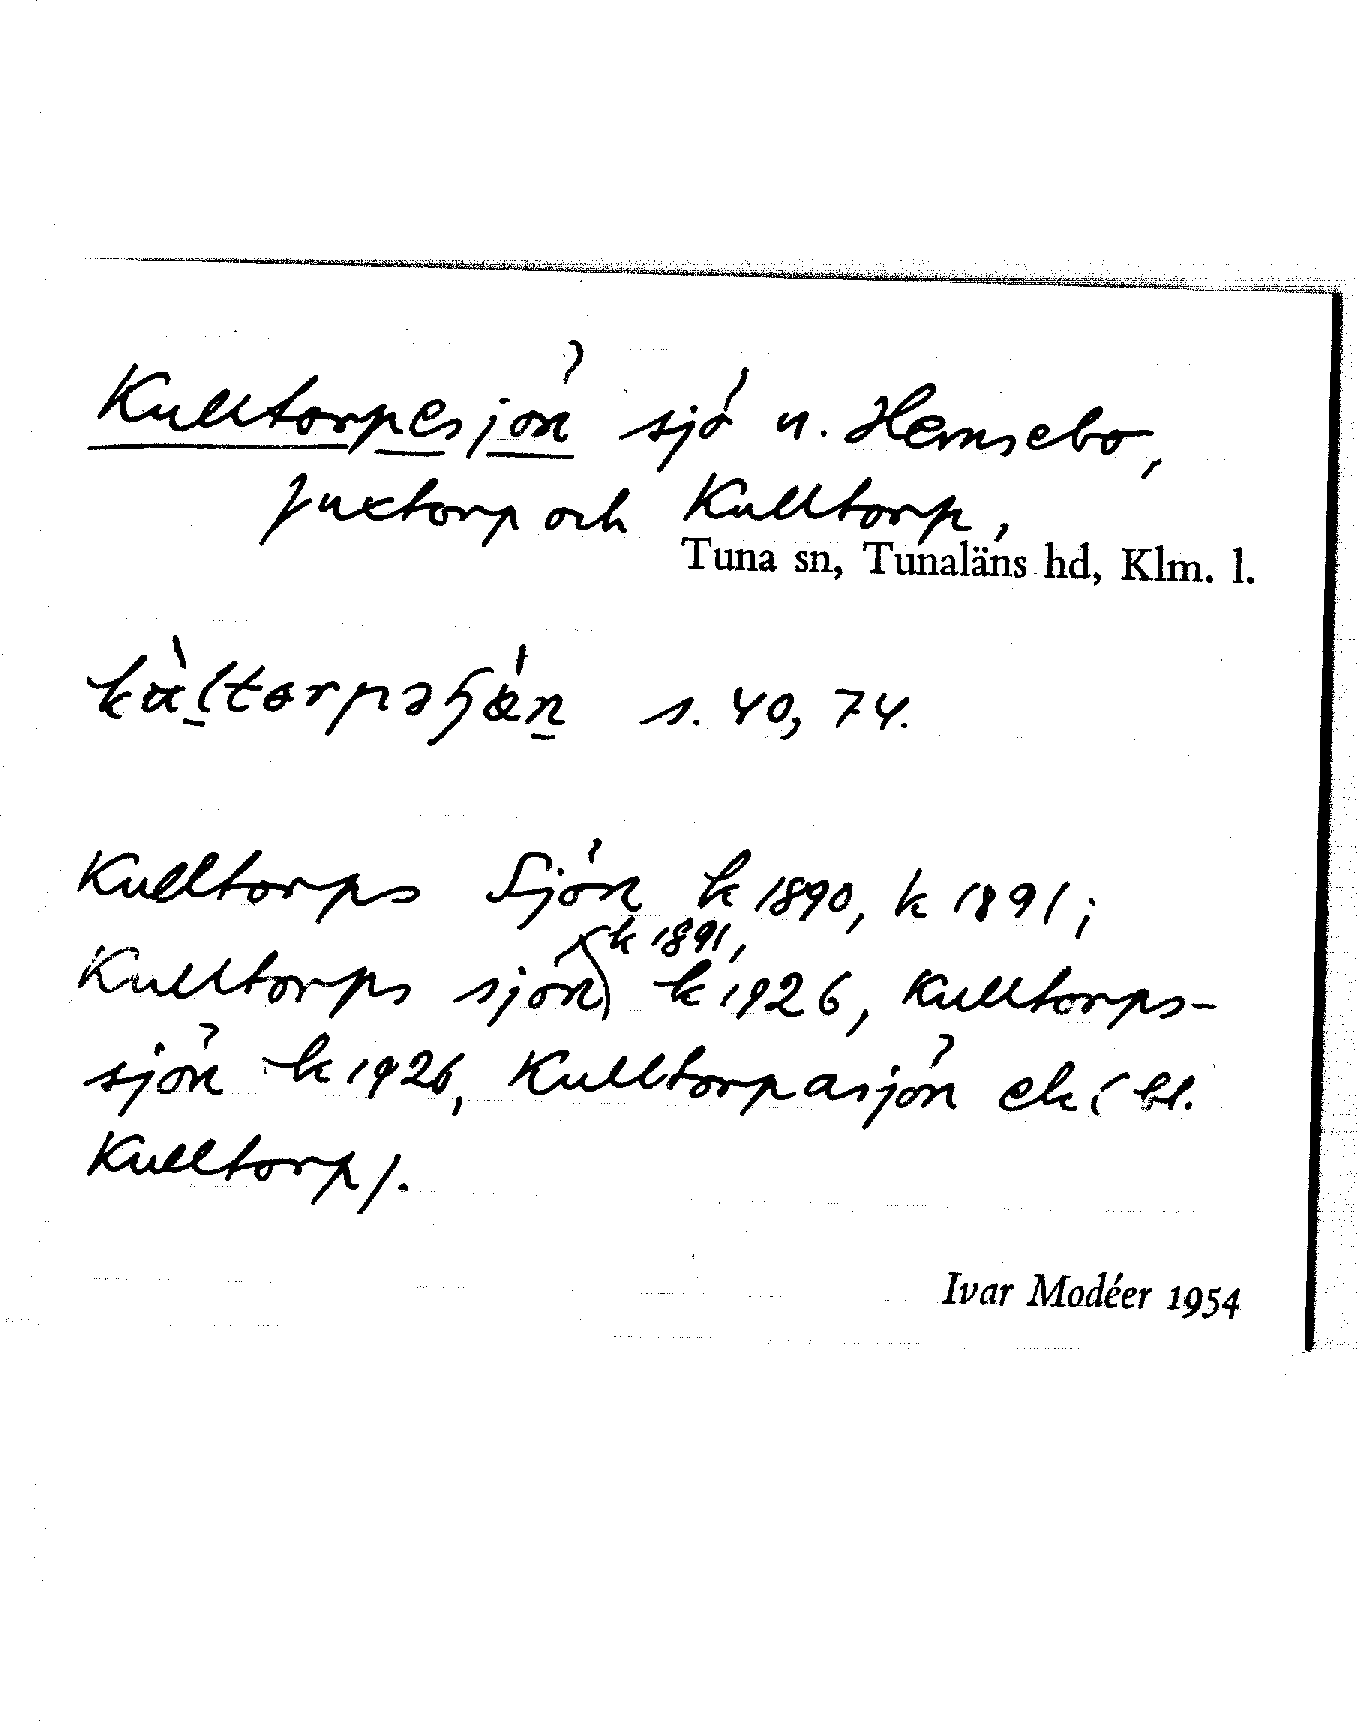 Kulltorpesjön sjö u. Hemsebo,
Juxtorp och Kulltorp,
Tuna sn, Tunaläns hd, Klm. l.
s. 40, 74.
Kulltorps Sjön k 1890, k 1891;
k 1891,
Kulltorps sjön k 1926, Kulltorps-
sjön k 1926, Kulltorpasjön ek (bl.
Kulltorp).
Ivar Modéer 1954